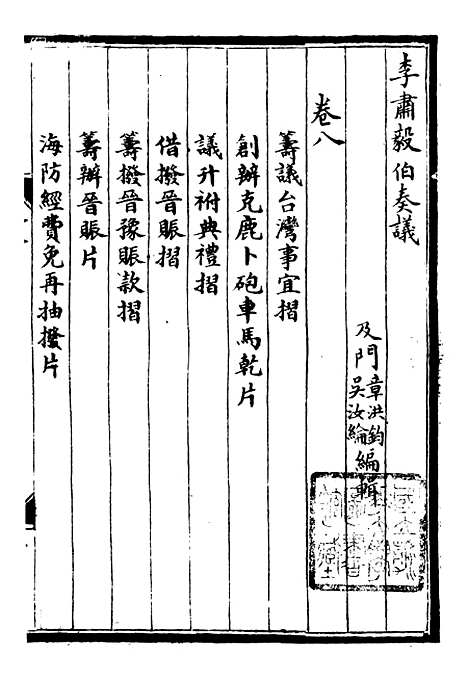 李肅毅伯奏議
及門章洪鈞吳汝綸編輯
卷八
籌議台灣事宜摺
創辦克鹿卜砲車馬乾片
議升祔典禮摺
借撥晉賑摺
籌撥晉豫賑款摺
籌辦晉賑片
海防經費免再抽撥片